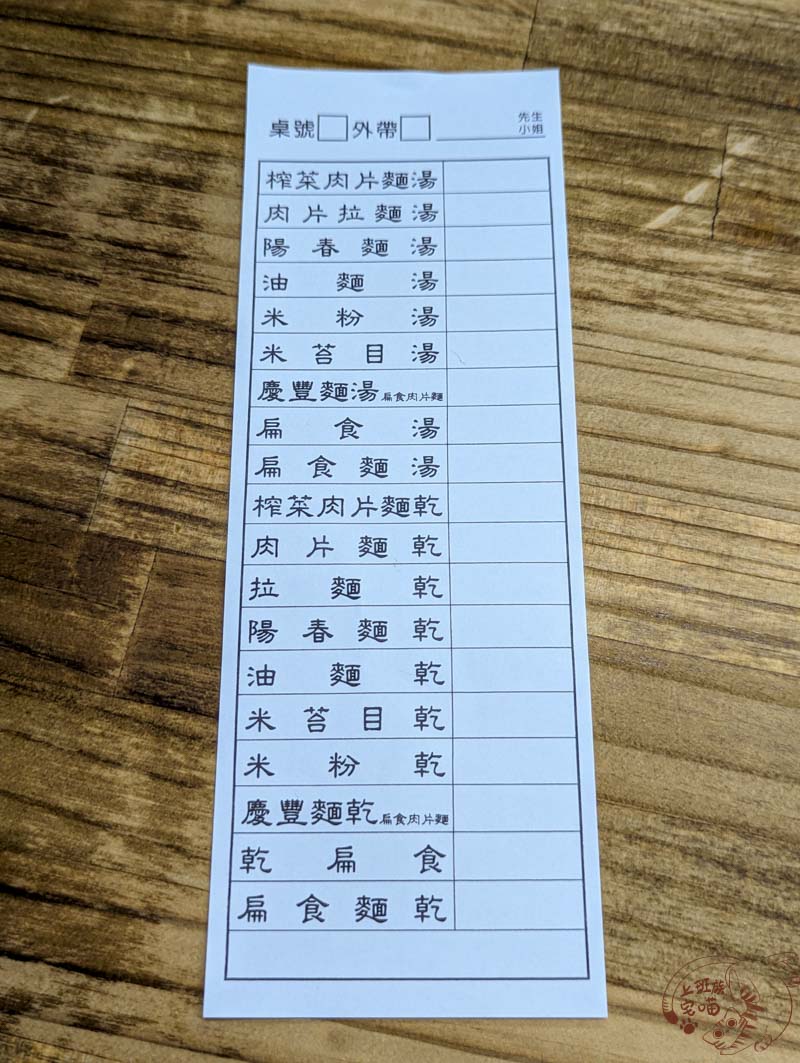 桌號 外帶 先生
小姐
榨菜肉片麵湯
肉片拉麵湯
陽春麵湯
油麵湯
米粉湯
米苔目湯
慶豐麵湯扁食肉片麵
扁食湯
扁食麵湯
榨菜肉片麵乾
肉片麵乾
拉麵乾
陽春麵乾
油麵乾
米苔目乾
米粉乾
慶豐麵乾扁食肉片麵
乾扁食
扁食麵乾
上班族
宅喵